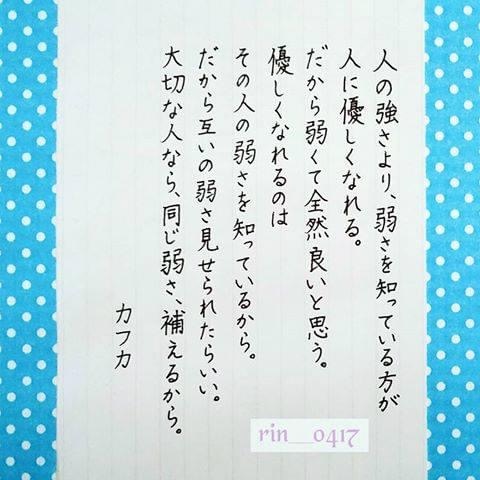 人の強さより、弱さを知っている方が
人に優しくなれる。
だから弱くて全然良いと思う。
優しくなれるのは
その人の弱さを知っているから。
だから互いの弱さ見せられたらいい。
大切な人なら、同じ弱さ、補えるから。
カフカ
rin__0417